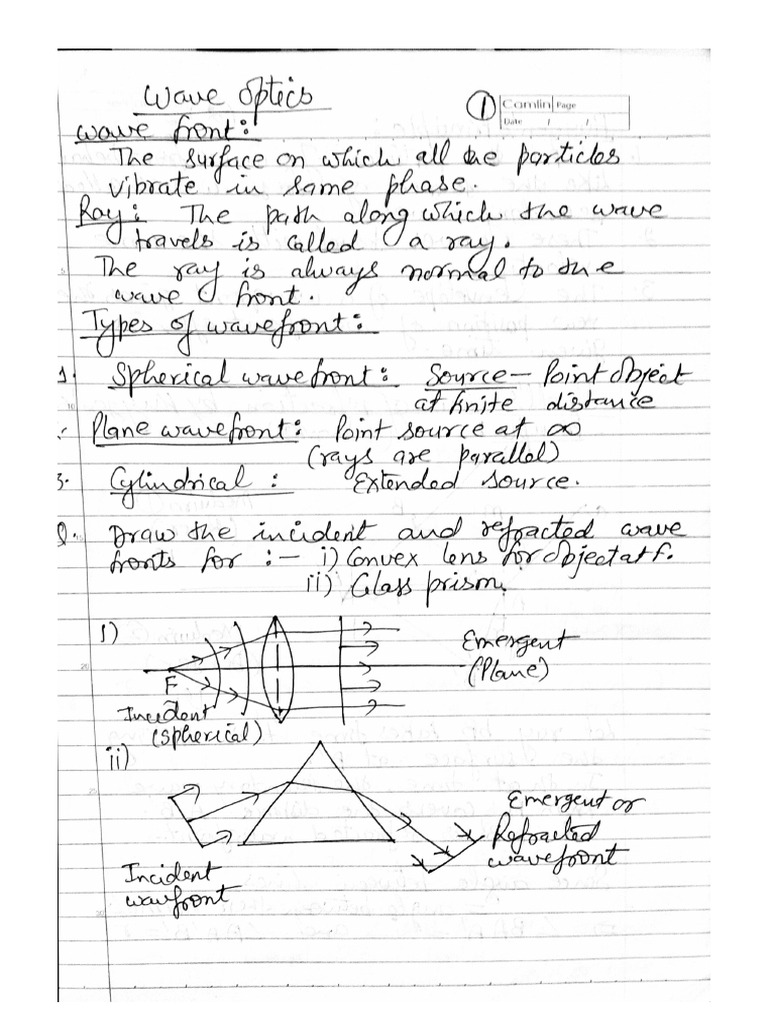 Wave Optics
1 Camlin Page
Date / /
Wave front:
The surface on which all the particles
vibrate in same phase.
Ray: The path along which the wave
travels is called a ray.
The ray is always normal to the
wave front.
Types of wavefront:
1. Spherical wavefront: Source – Point object
at finite distance
Plane wavefront: Point source at ∞
(rays are parallel)
3. Cylindrical: Extended source.
Q. Draw the incident and refracted wave
fronts for :- i) Convex lens for object at F.
ii) Glass prism.
i)
Emergent
(Plane)
F
Incident
(Spherical)
ii)
Emergent or
Refracted
wavefront
Incident
wavfront